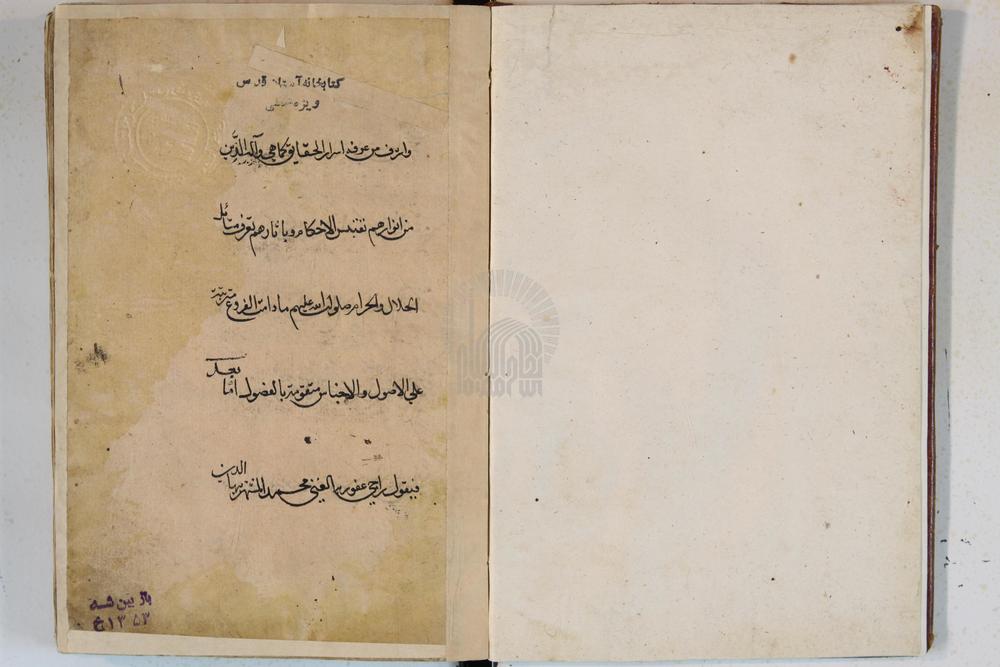 كتابخانه آستان قدس
واشرف من عرف اسرار الحقايق كماهي وآله الذين
من انوارهم نقتبس الاحكام وباثارهم نعرف مسائل
الحلال والحرام صلوات الله عليهم مادامت الفروع مترتبة
على الاصول والاجناس متقومة بالفصول اما بعد
فيقول راجي عفو ربه الغني محمد المشتهر ببهاء الدين
بازبین شد
۱۳۵۳ خ